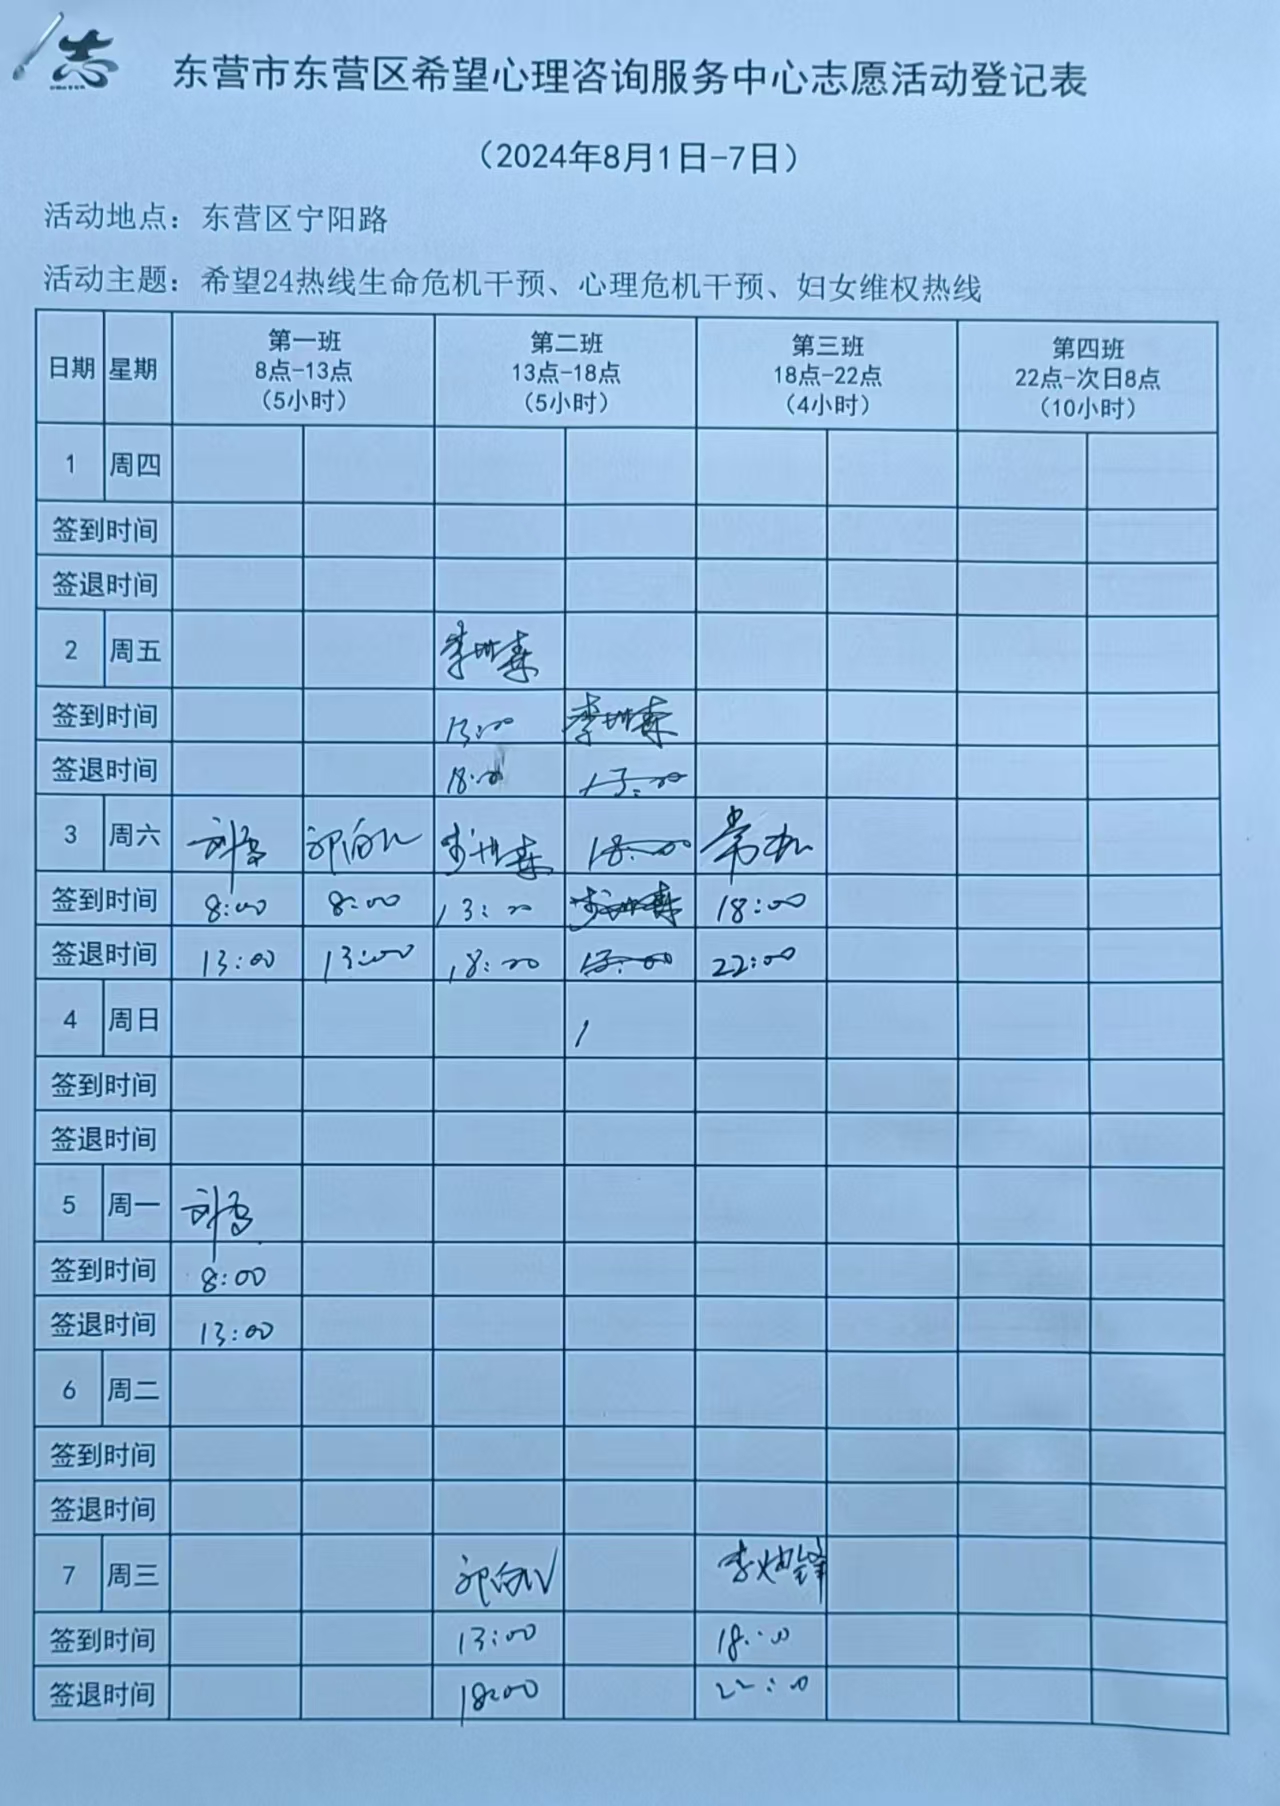 志
东营市东营区希望心理咨询服务中心志愿活动登记表
（2024年8月1日-7日）
活动地点：东营区宁阳路
活动主题：希望24热线生命危机干预、心理危机干预、妇女维权热线
日期 星期 第一班 8点-13点 （5小时） 第二班 13点-18点 （5小时） 第三班 18点-22点 （4小时） 第四班 22点-次日8点 （10小时）
1 周四
签到时间
签退时间
2 周五
签到时间 13:00
签退时间 18:00 13:00
3 周六 18:00
签到时间 8:00 8:00 13:00 18:00
签退时间 13:00 13:00 18:00 13:00 22:00
4 周日
签到时间
签退时间
5 周一
签到时间 8:00
签退时间 13:00
6 周二
签到时间
签退时间
7 周三
签到时间 13:00 18:00
签退时间 18:00 22:00